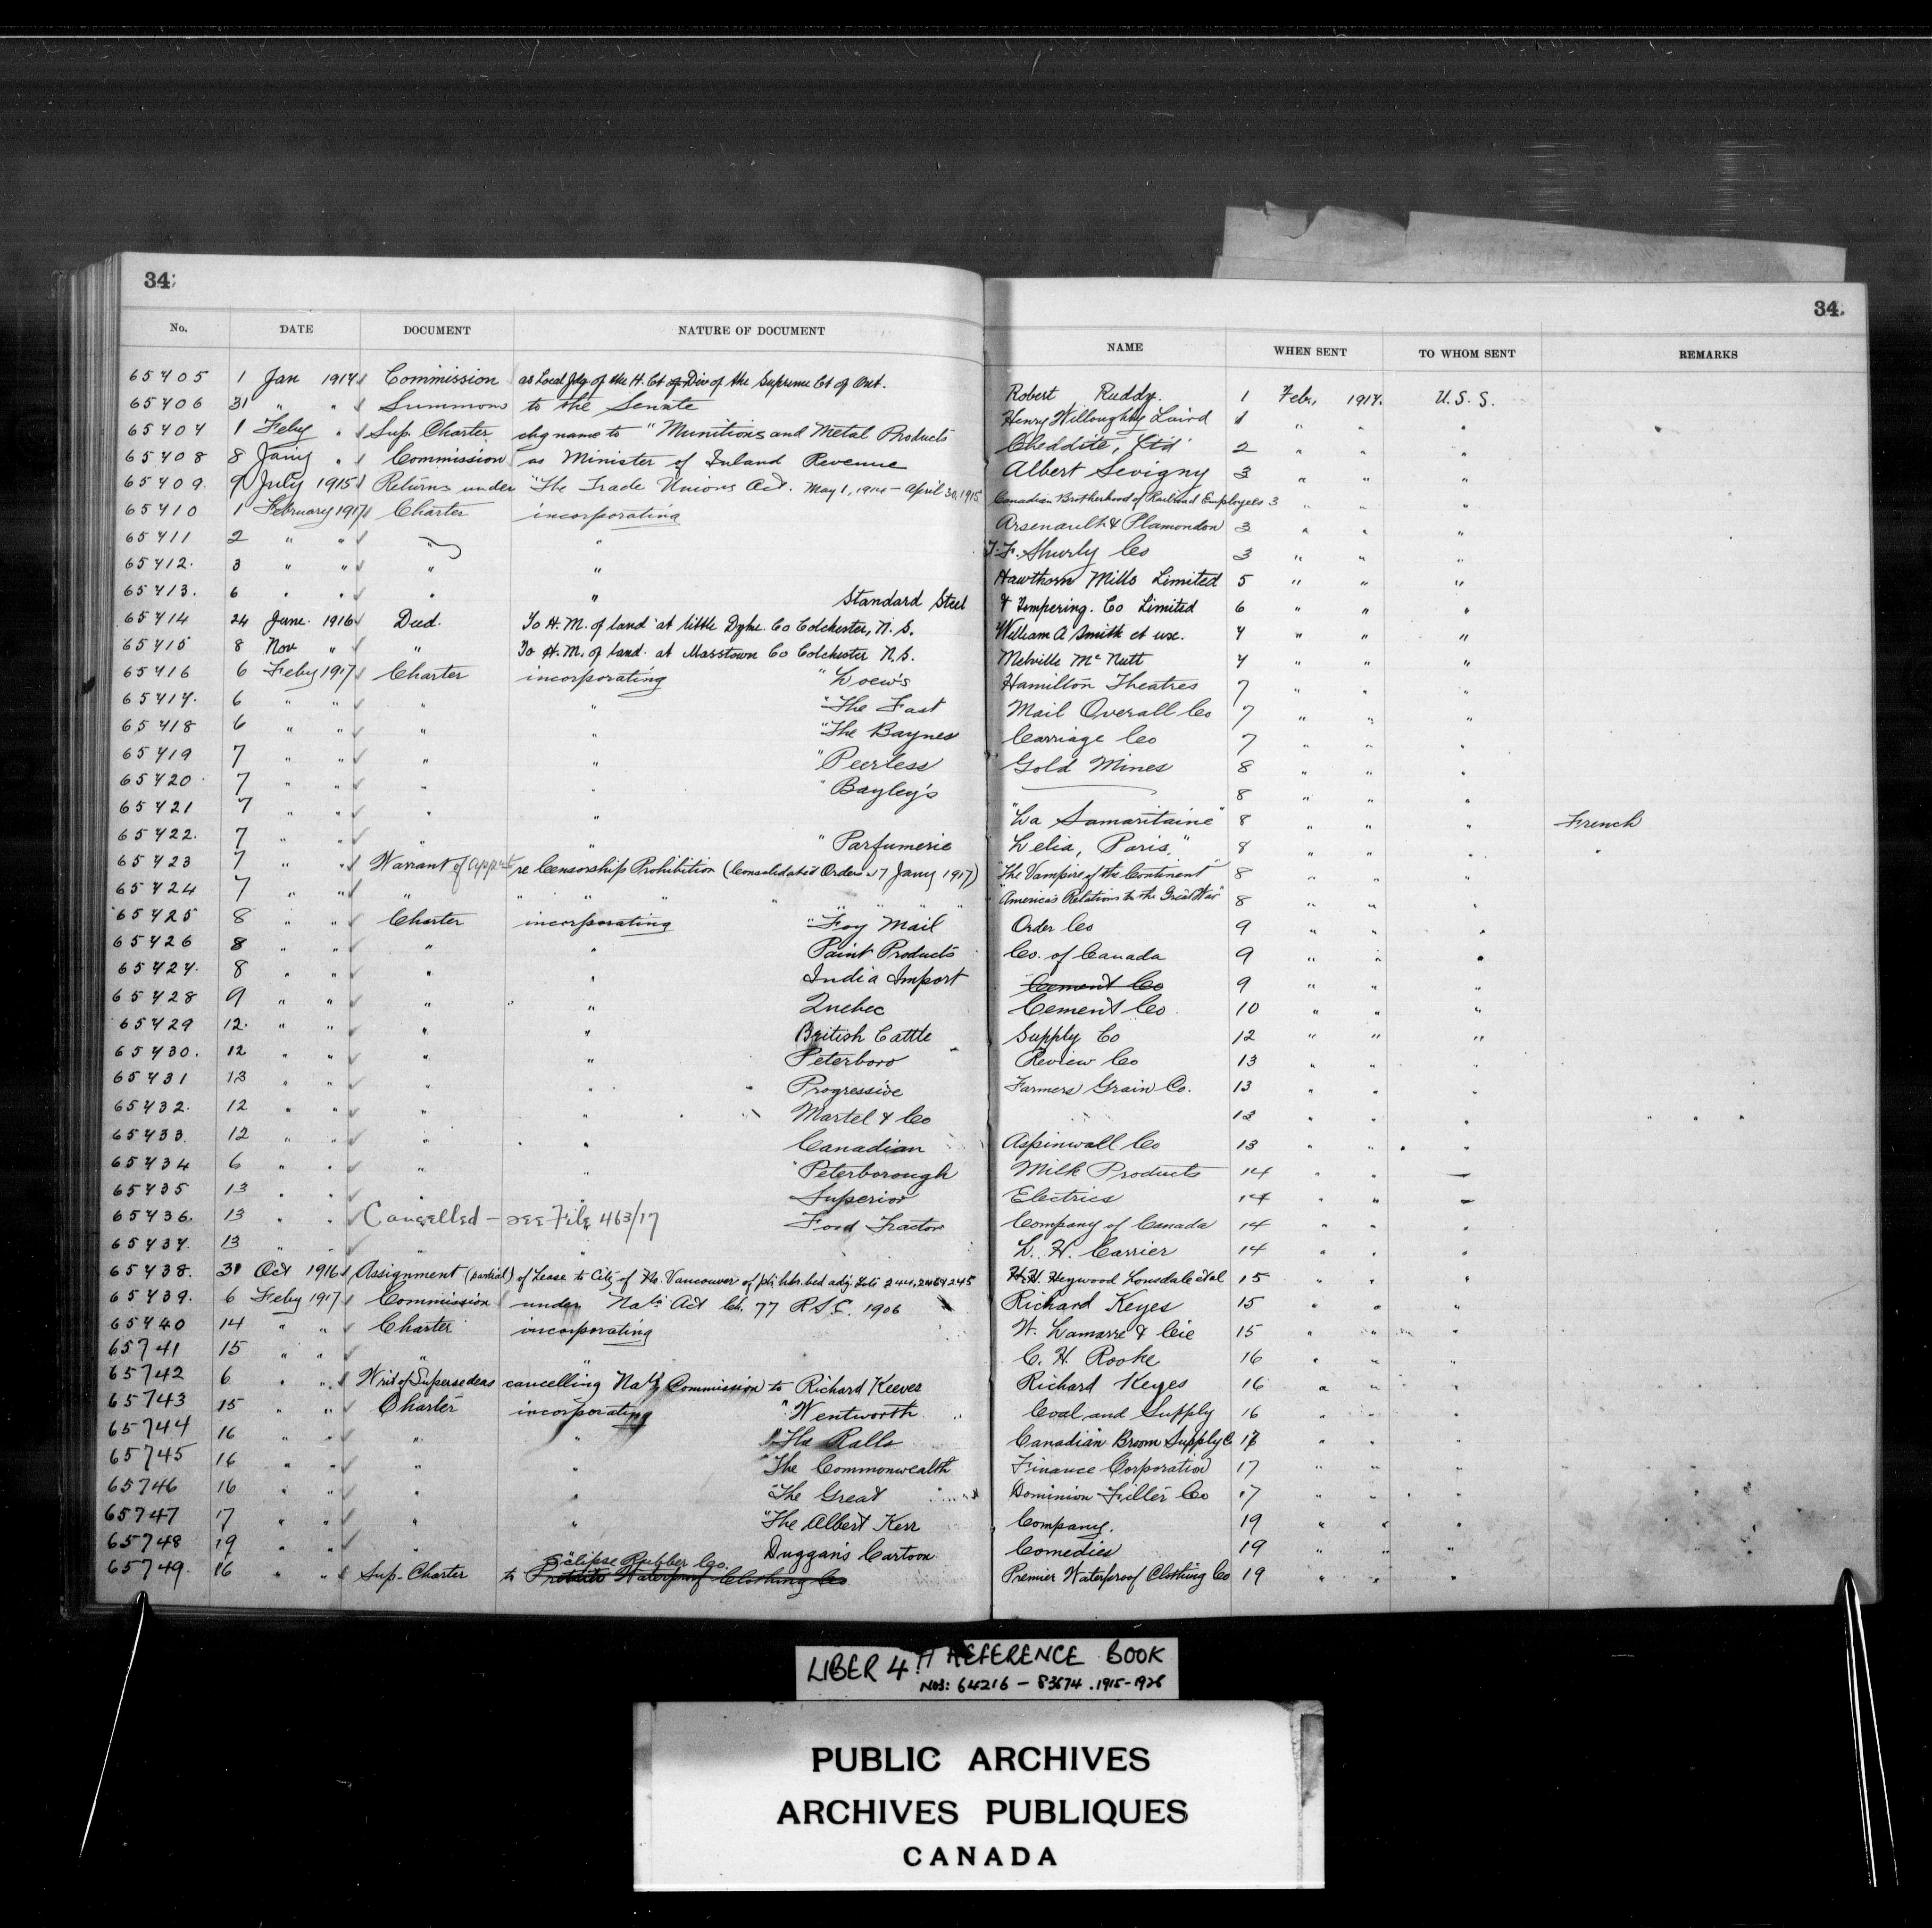 34
No. DATE DOCUMENT NATURE OF DOCUMENT
34
NAME WHEN SENT TO WHOM SENT REMARKS
65705 1 Jan 1917 Commission as Local Jdg of the H. Ct of Div of the Supreme Ct of Ont. Robert Ruddy. 1 Feb, 1917. U.S.S.
65706 31 " " Summons to the Senate Henry Willoughby Laird 1 " " "
65707 1 Feby " Sup. Charter chg name to "Munitions and Metal Products Cheddite, Ltd 2 " " "
65708 8 Jany " Commission as Minister of Inland Revenue Albert Sevigny 3 " " "
65709. 9 July 1915 Returns under "The Trade Unions Act. May 1, 1914 – April 30, 1915 Canadian Brotherhood of Railroad Employees 3 " "
65710 1 February 1917 Charter incorporating Arsenault & Plamondon 3 " " "
65711 2 " " " " J. F. Shurly Co 3 " " "
65712. 3 " " " " Hawthorn Mills Limited 5 " " "
65713. 6 " " " " Standard Steel & Tempering. Co Limited 6 " " "
65714 24 June. 1916 Deed. To H.M. of land at little Dyke Co Colchester, N.S. William A Smith et ux. 7 " " "
65715 8 Nov " " To H.M. of land at Masstown Co Colchester N.S. Melville McNutt 7 " " "
65716 6 Feby 1917 Charter incorporating "Loew's Hamilton Theatres 7 " " "
65717. 6 " " " " "The Fast Mail Overall Co 7 " " "
65718 6 " " " " "The Baynes Carriage Co 7 " " "
65719 7 " " " " "Peerless Gold Mines 8 " " "
65720 7 " " " " "Bayley's 8 " " "
65721 7 " " " " "La Samaritaine" 8 " " " French
65722. 7 " " " " "Parfumerie Lelia, Paris," 8 " " " "
65723 7 " " Warrant of Appt re Censorship Prohibition (Consolidated Orders 17 Jany 1917) "The Vampire of the Continent" 8 " " "
65724 7 " " " " " " " " "America's Relations to the Great War" 8 " " "
65725 8 " " Charter incorporating "Foy Mail Order Co 9 " " "
65726 8 " " " " Paint Products Co. of Canada 9 " " "
65727. 8 " " " " India Import Cement Co 9 " " "
65728 9 " " " " Quebec Cement Co 10 " " "
65729 12. " " " " British Cattle Supply Co 12 " " "
65730. 12 " " " " Peterboro Review Co 13 " " "
65731 13 " " " " Progressive Farmers Grain Co. 13 " " "
65732. 12 " " " " Martel & Co 13 " " "
65733. 12 " " " " Canadian Aspinwall Co 13 " " "
65734 6 " " " " "Peterborough Milk Products 14 " " "
65735 13 " " " " Superior Electrics 14 " " "
65736. 13 " " Cancelled – see File 463/17 Ford Tractor Company of Canada 14 " " "
65737. 13 " " " " L. H. Carrier 14 " " "
65738. 31 Oct 1916 Assignment (partial) of Lease to City of No. Vancouver of pt. hbr. bed adj. Lots 244, 245 H.H. Heywood Lonsdale et al 15 " " "
65739. 6 Feby 1917 Commission under Natn Act Ch. 77 R.S.C. 1906 Richard Keyes 15 " " "
65740 14 " " Charter incorporating W. Lamarre & Cie 15 " " "
65741 15 " " " " C. H. Rooke 16 " " "
65742 6 " " Writ of Supersedeas cancelling Natn Commission to Richard Keeves Richard Keyes 16 " " "
65743 15 " " Charter incorporating "Wentworth Coal and Supply 16 " " "
65744 16 " " " " "The Ralls Canadian Broom Supply C 17 " " "
65745 16 " " " " "The Commonwealth Finance Corporation 17 " " "
65746 16 " " " " "The Great Dominion Filler Co 17 " " "
65747 17 " " " " "The Albert Kerr Company. 19 " " "
65748 19 " " " " Duggan's Cartoon Comedies 19 " " "
65749. 16 " " Sup. Charter to Eclipse Rubber Co. Waterproof Clothing Co Premier Waterproof Clothing Co 19 " " "
LIBER 4 H REFERENCE BOOK
NOS: 64216 – 83674 . 1915-1926
PUBLIC ARCHIVES
ARCHIVES PUBLIQUES
CANADA